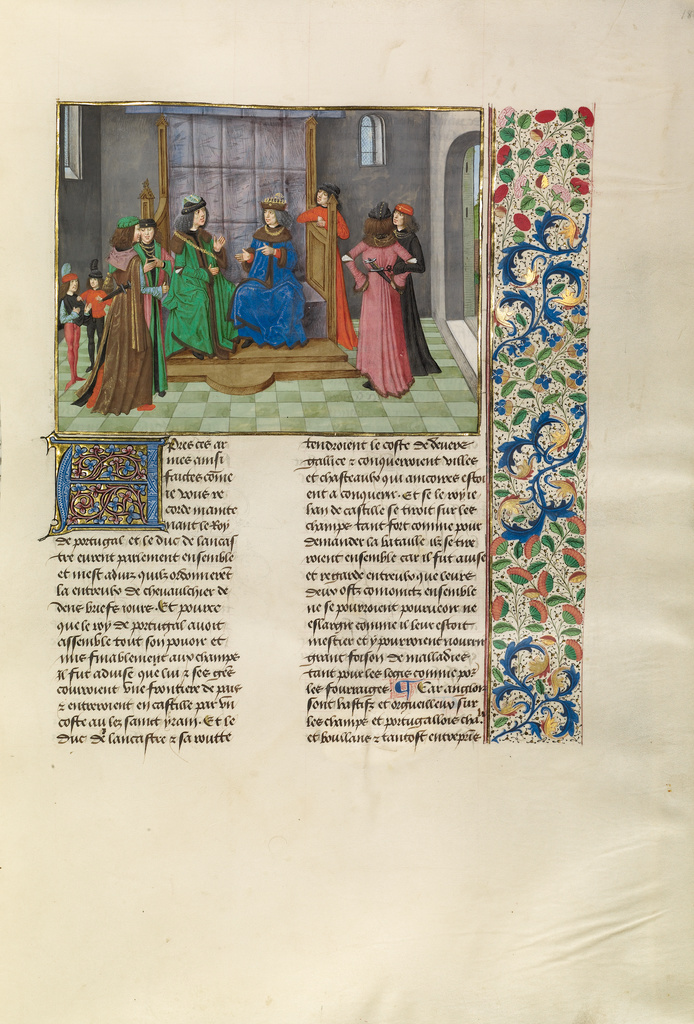 Apres ces ar
mes ainsi
faictes come
ie vous re
corde mainte
nant le Roy
de portugal et le duc de lancas
tre eurent parlement ensemble
et mest aduiz quilz ordonnerent
la entreulx de cheuauchier de
dens briefs iours. Et pource
que le roy de portugal auoit
assemble tout son pouoir et
mis finablement aux champs
il fut aduise que lui z ses gens
couroient vne frontiere de pais
z entreroient en castille par vn
coste au lez sainct yrain. Et le
duc de lancastre z sa routte
tendroient le coste de
gallice z conquerroient villes
et chasteaulx qui encores estoi
ent a conquerir. Et se le roy ie
han de castille se tiroit sur les
champs tant fort comme pour
demander la bataille ilz se tre
roient ensemble car il fut aduise
et regarde entreulx que leurs
deux ostz conioinctz ensemble
ne se pourroient pourueoir ne
eslargir comme il leur estoit
mestier et y pourroient nourrir
grant foison de malladies
tant pour les logis comme por
les fourrages. Car anglois
sont hastifz et orgueilleux sur
les champs et portugallois chaulx
et boullans z tantost entreprins